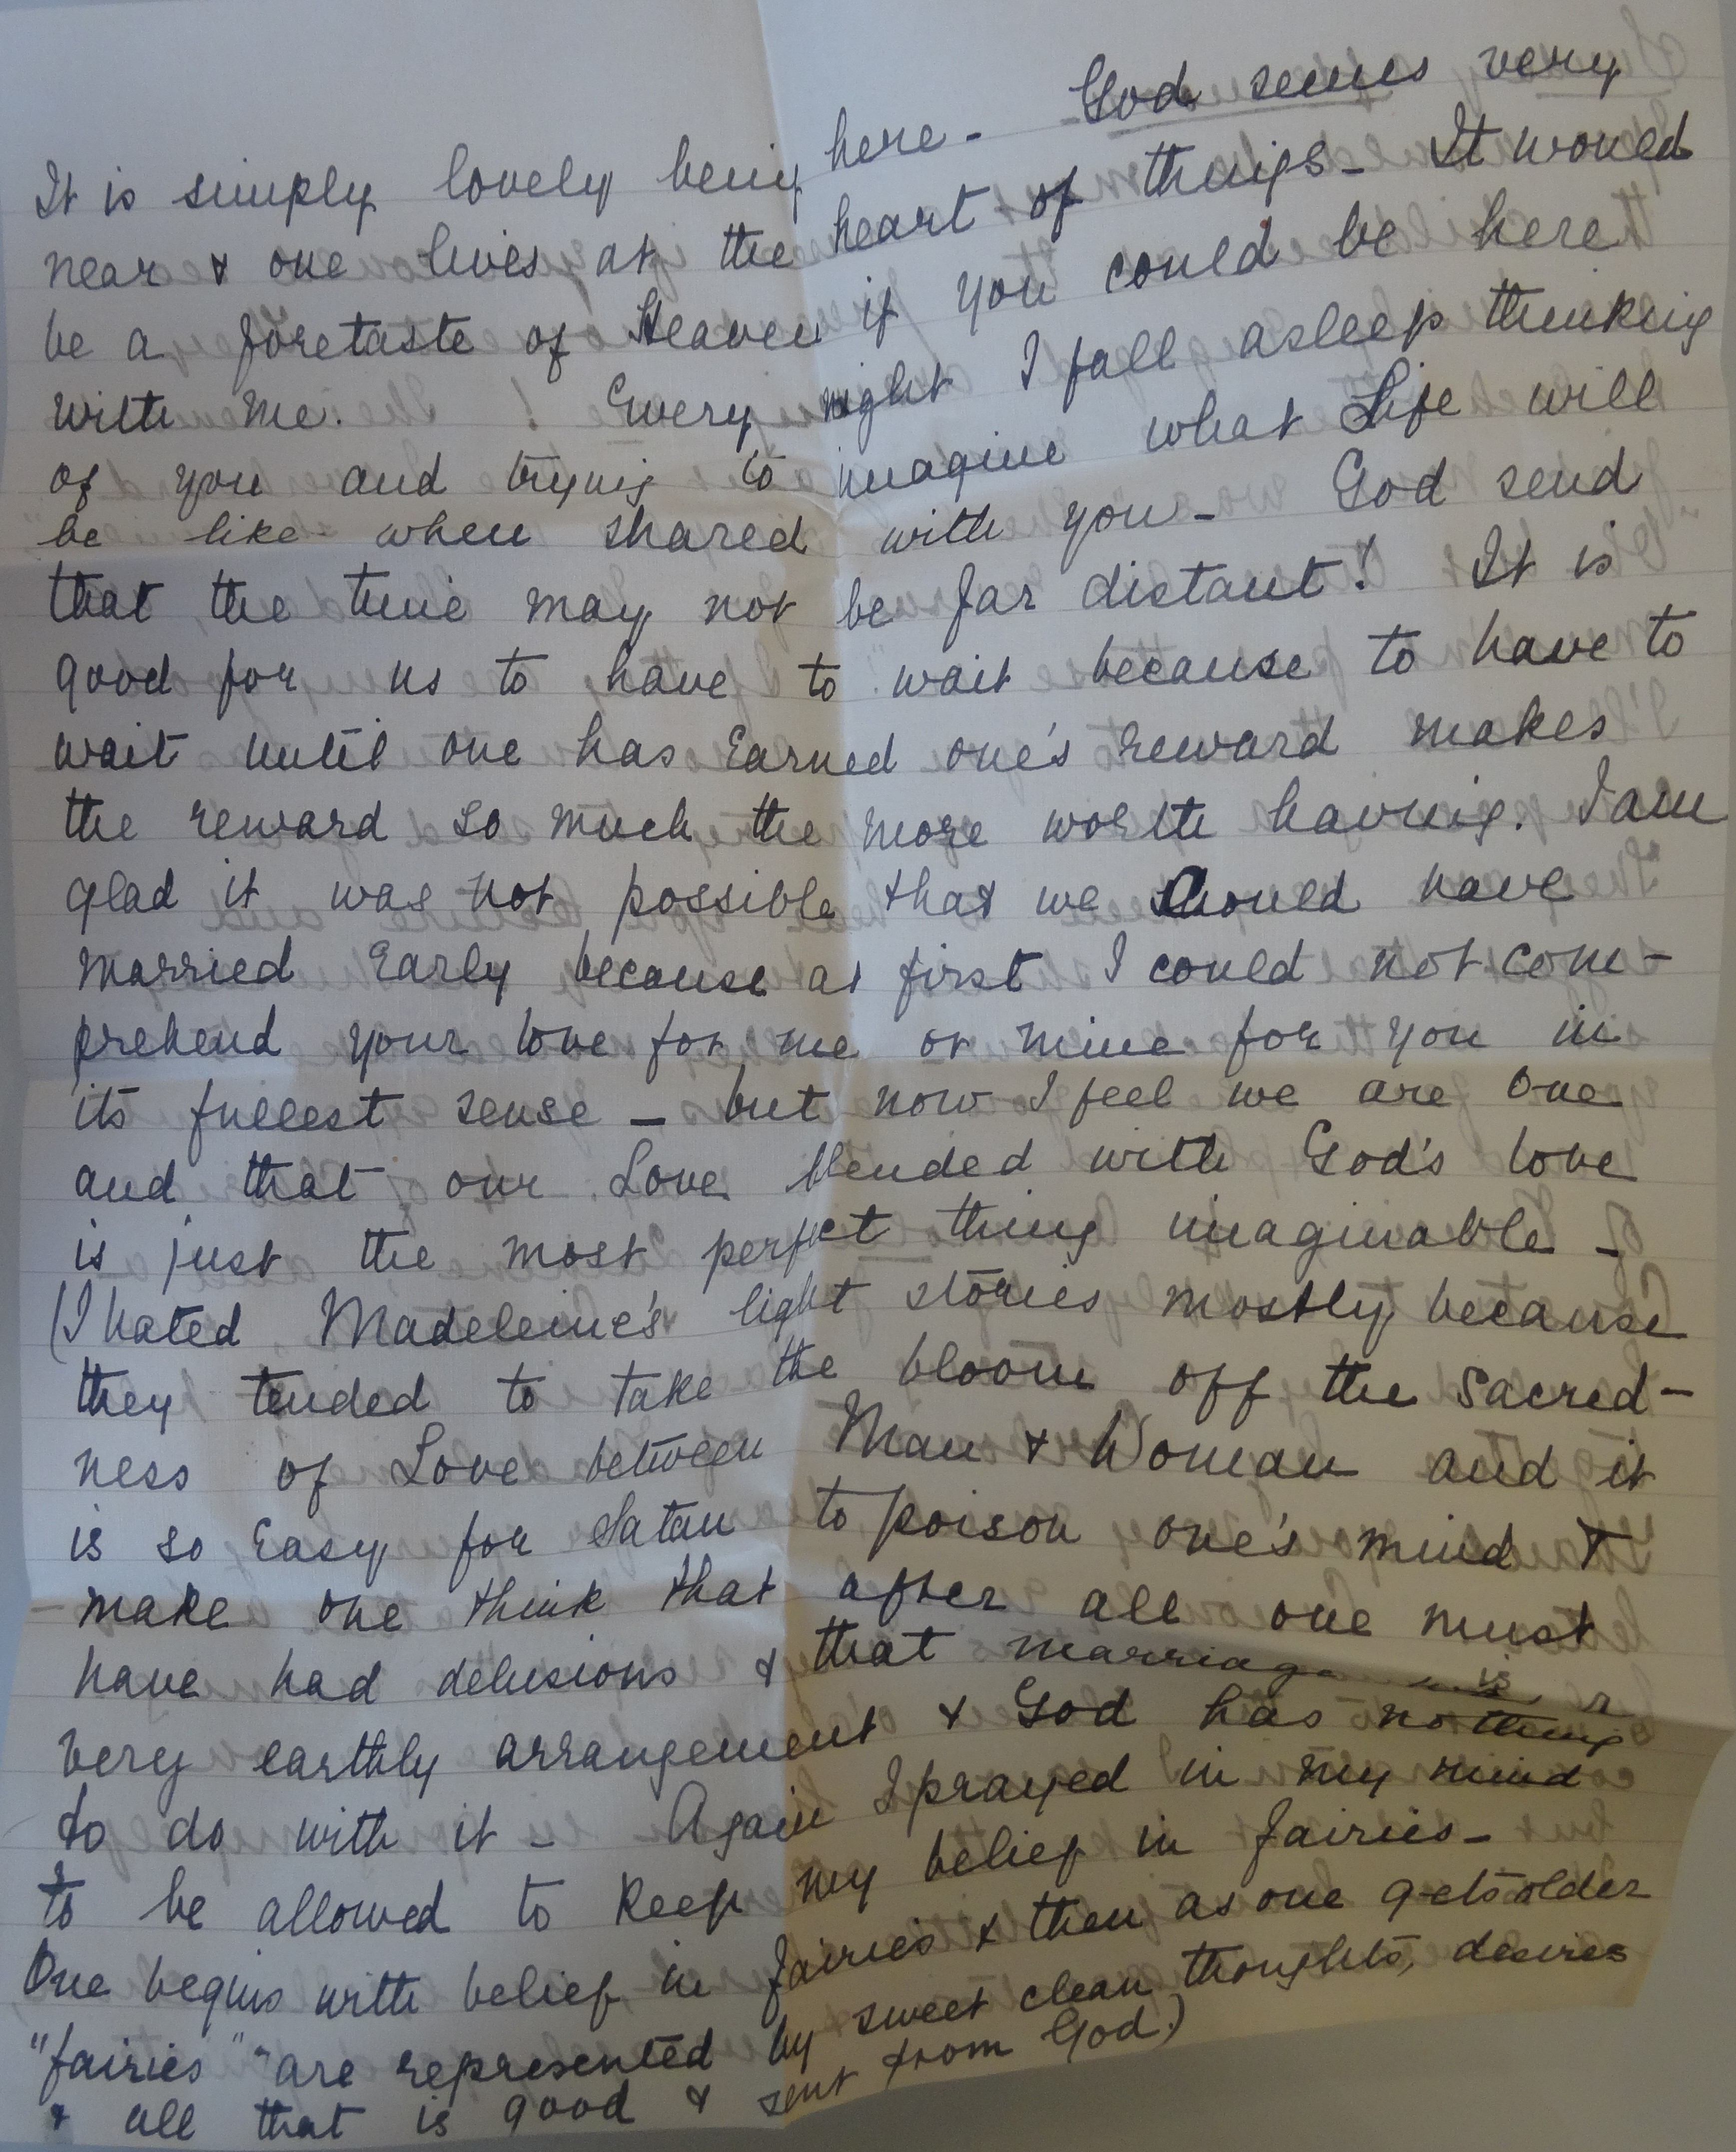 It is simply lovely being here - God seems very
near & one lives at the heart of things - It would
be a foretaste of Heaven if you could be here
with me. Every night I fall asleep thinking
of you and trying to imagine what Life will
be like when shared with you - God send
that the time may not be far distant! It is
good for us to have to wait because to have to
wait until one has earned one's reward makes
the reward so much the more worth having. I am
glad it was not possible that we should have
married early because at first I could not com-
prehend your love for me or mine for you in
its fullest sense - but now I feel we are one
and that our Love blended with God's love
is just the most perfect thing imaginable -
(I hated Madeleine's light stories mostly because
they tended to take the bloom off the sacred-
ness of Love between Man & Woman and it
is so easy for Satan to poison one's mind &
make one think that after all one must
have had delusions & that marriage is a
very earthly arrangement & God has nothing
to do with it - Again I prayed in my mind
to be allowed to keep my belief in fairies -
One begins with belief in fairies & then as one gets older
"fairies" are represented by sweet clean thoughts, desires
& all that is good & sent from God.)